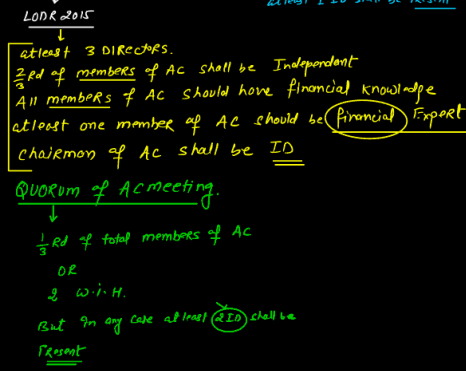 atleast 1 ID shall be Present
LODR 2015
atleast 3 DIRectoRs.
2/3 Rd of members of AC shall be Independent
All members of AC should have financial knowledge
atleast one member of AC should be financial Expert
chairman of AC shall be ID
QUORUM of AC meeting.
1/3 Rd of total members of AC
OR
2 w.i.H.
But in any case at least 2 ID shall be
Present